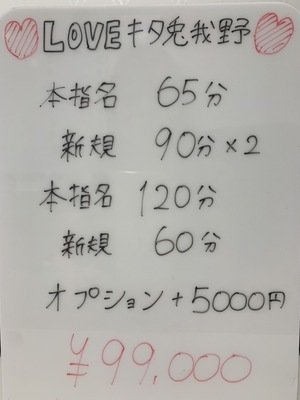 LOVEキタ兎我野
本指名 65分
新規 90分×2
本指名 120分
新規 60分
オプション+5000円
¥99,000